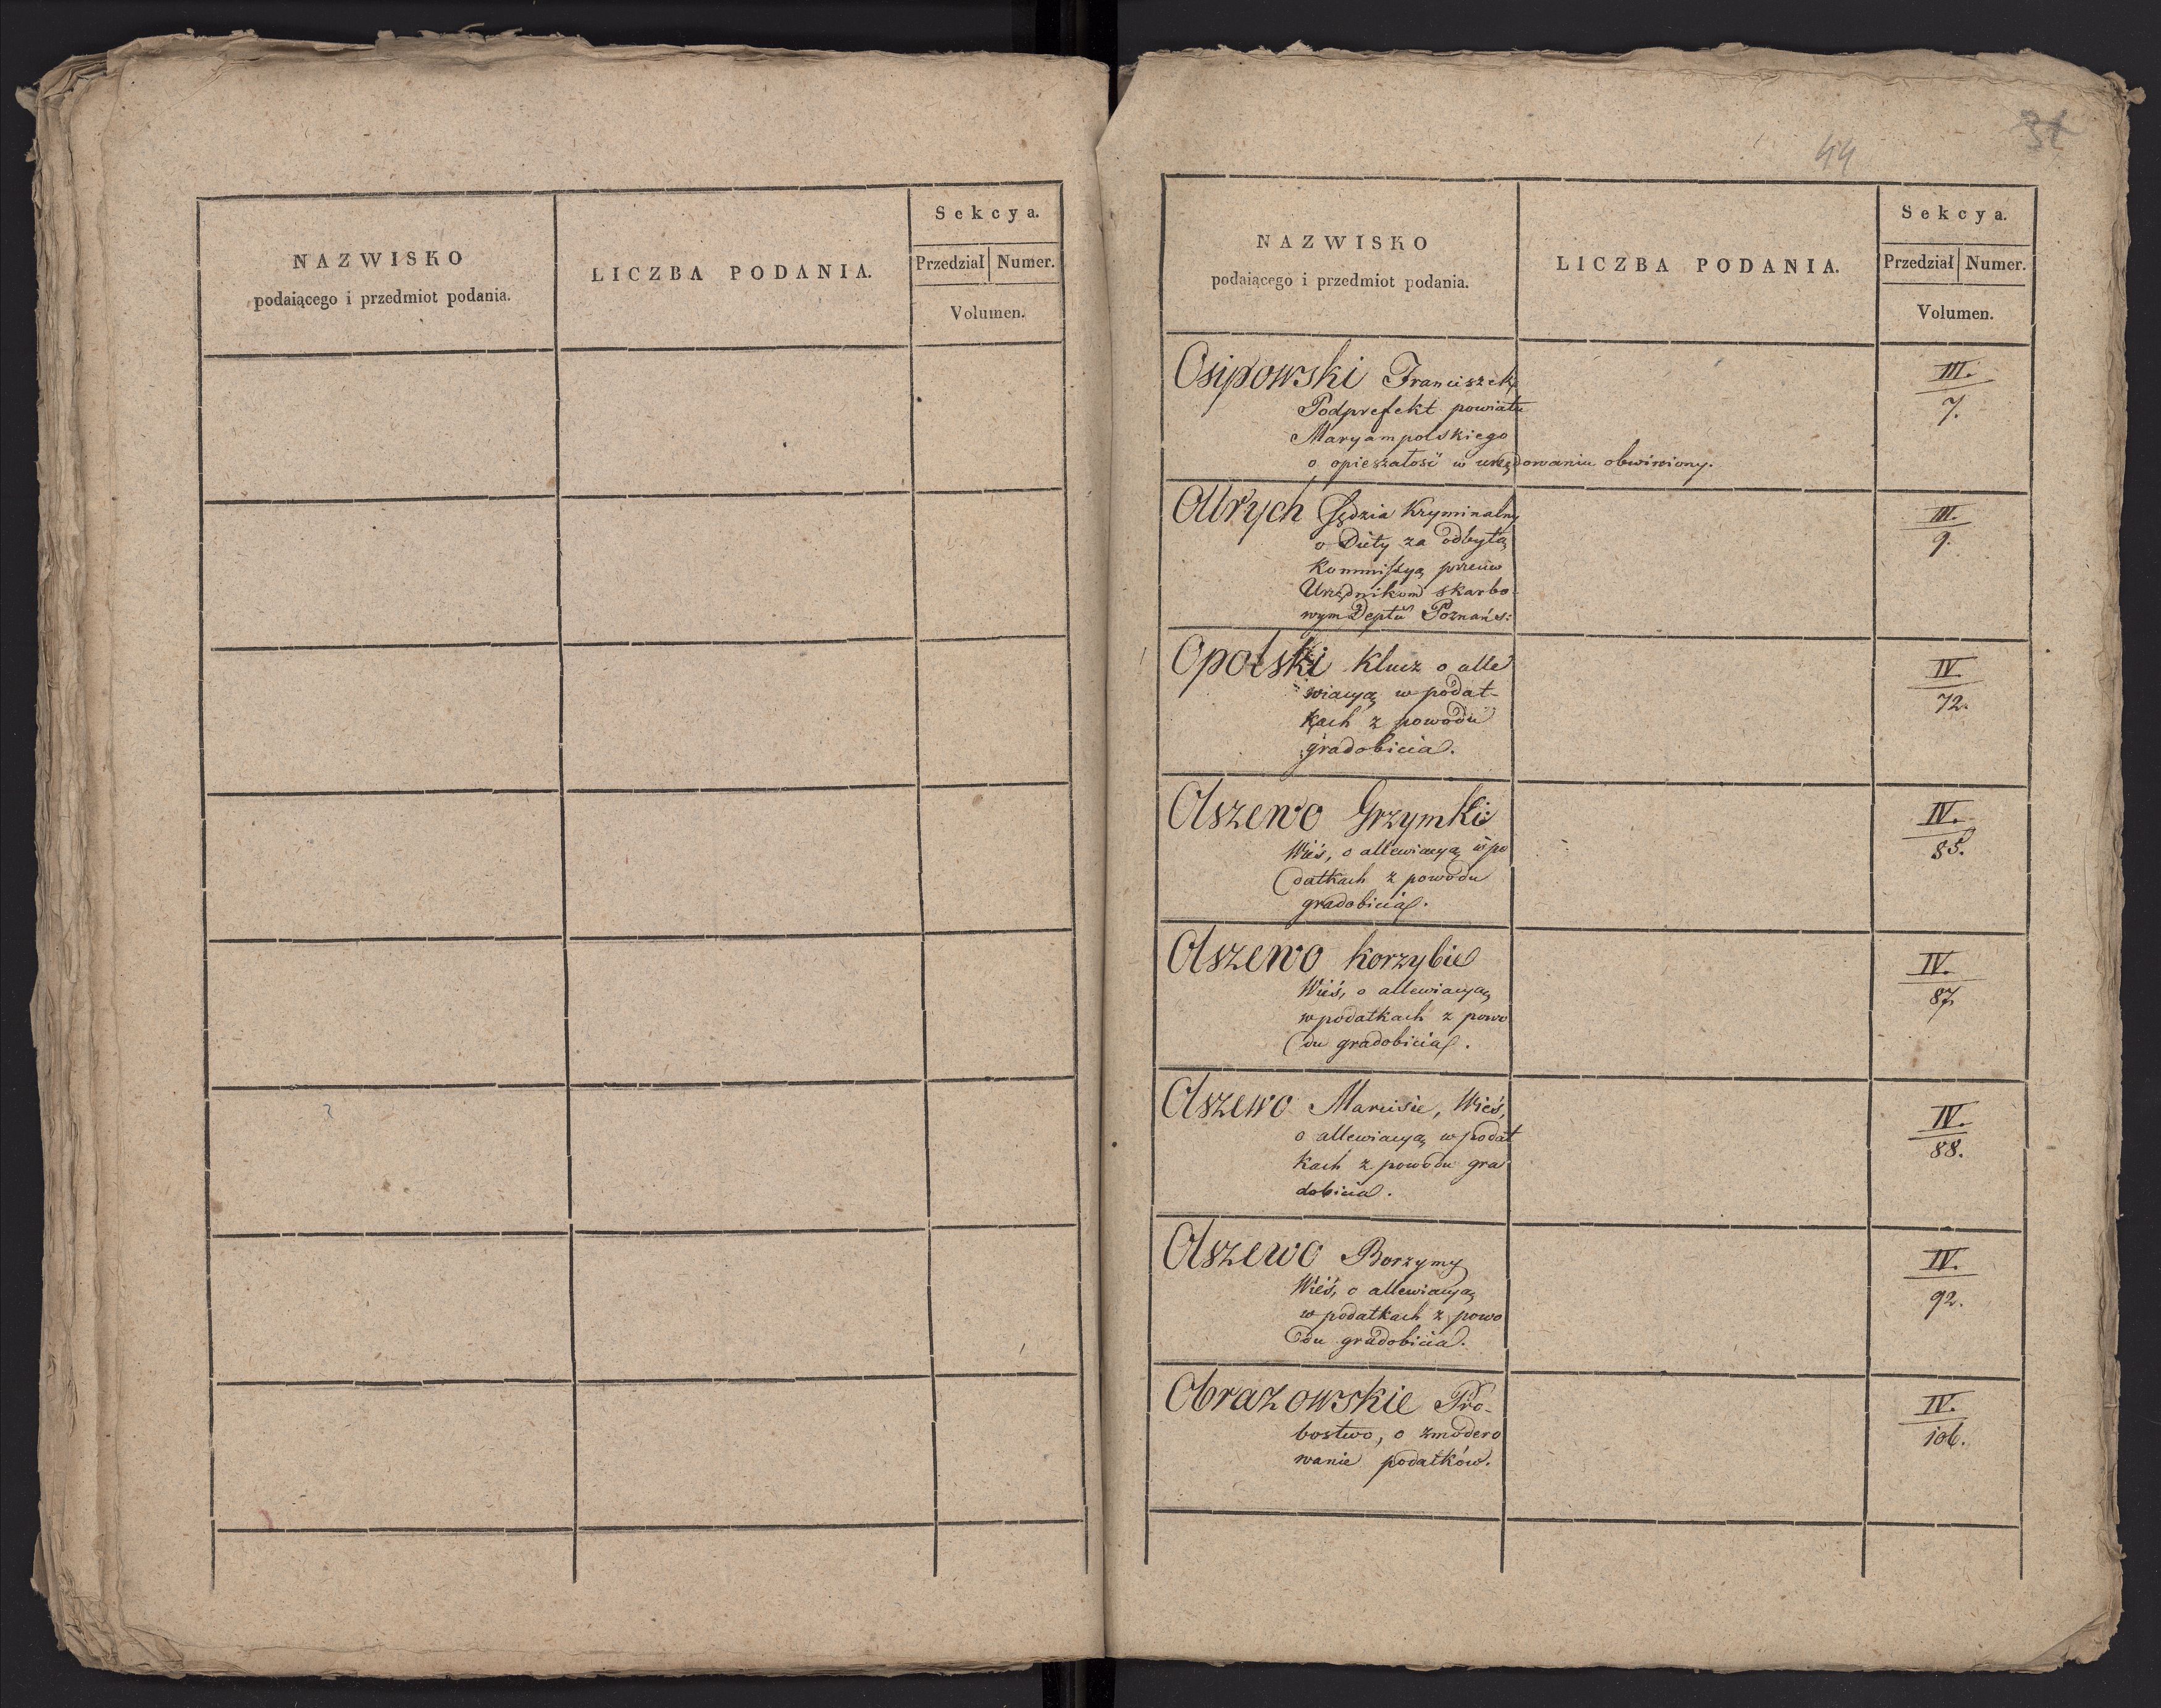 NAZWISKO
podaiącego i przedmiot podania.
LICZBA PODANIA.
Sekcya.
Przedział
Numer.
Volumen.
44
NAZWISKO
podaiącego i przedmiot podania.
LICZBA PODANIA.
Sekcya.
Przedział
Numer.
Volumen.
Osipowski Franciszek
Podprefekt powiatu
Maryampolskiego
o opieszałość w urzędowaniu obwiniony.
III.
7.
Ollrych Sędzia Kryminalny
o Diety za odbytą
Kommissyą przeciw
Urzędnikom skarbo-
wym Deptu Poznańs:
III.
9.
Opolski Klucz o alle
wiacyą w podat-
kach z powodu
gradobicia.
IV.
72.
Olszewo Grzymki
Wieś, o allewiacyą w po
datkach z powodu
gradobicia.
IV.
85.
Olszewo Korzybie
Wieś, o allewiacyą
w podatkach z powo
du gradobicia.
IV.
87.
Olszewo Marcisie, Wieś,
o allewiacyą w podat
kach z powodu gra
dobicia.
IV.
88.
Olszewo Borzymy
Wieś, o allewiacyą
w podatkach z powo
du gradobicia.
IV.
92.
Obrazowskie Pro-
bostwo, o zmodero
wanie podatków.
IV.
106.